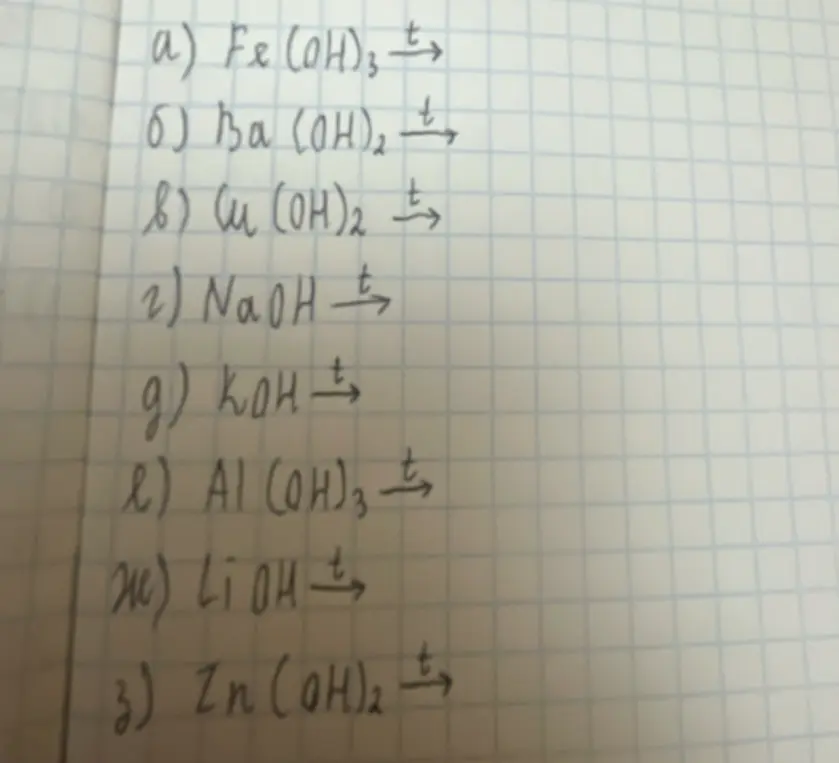 а) Fe(OH)₃ —t→
б) Ba(OH)₂ —t→
в) Cu(OH)₂ —t→
г) NaOH —t→
д) KOH —t→
е) Al(OH)₃ —t→
ж) LiOH —t→
з) Zn(OH)₂ —t→